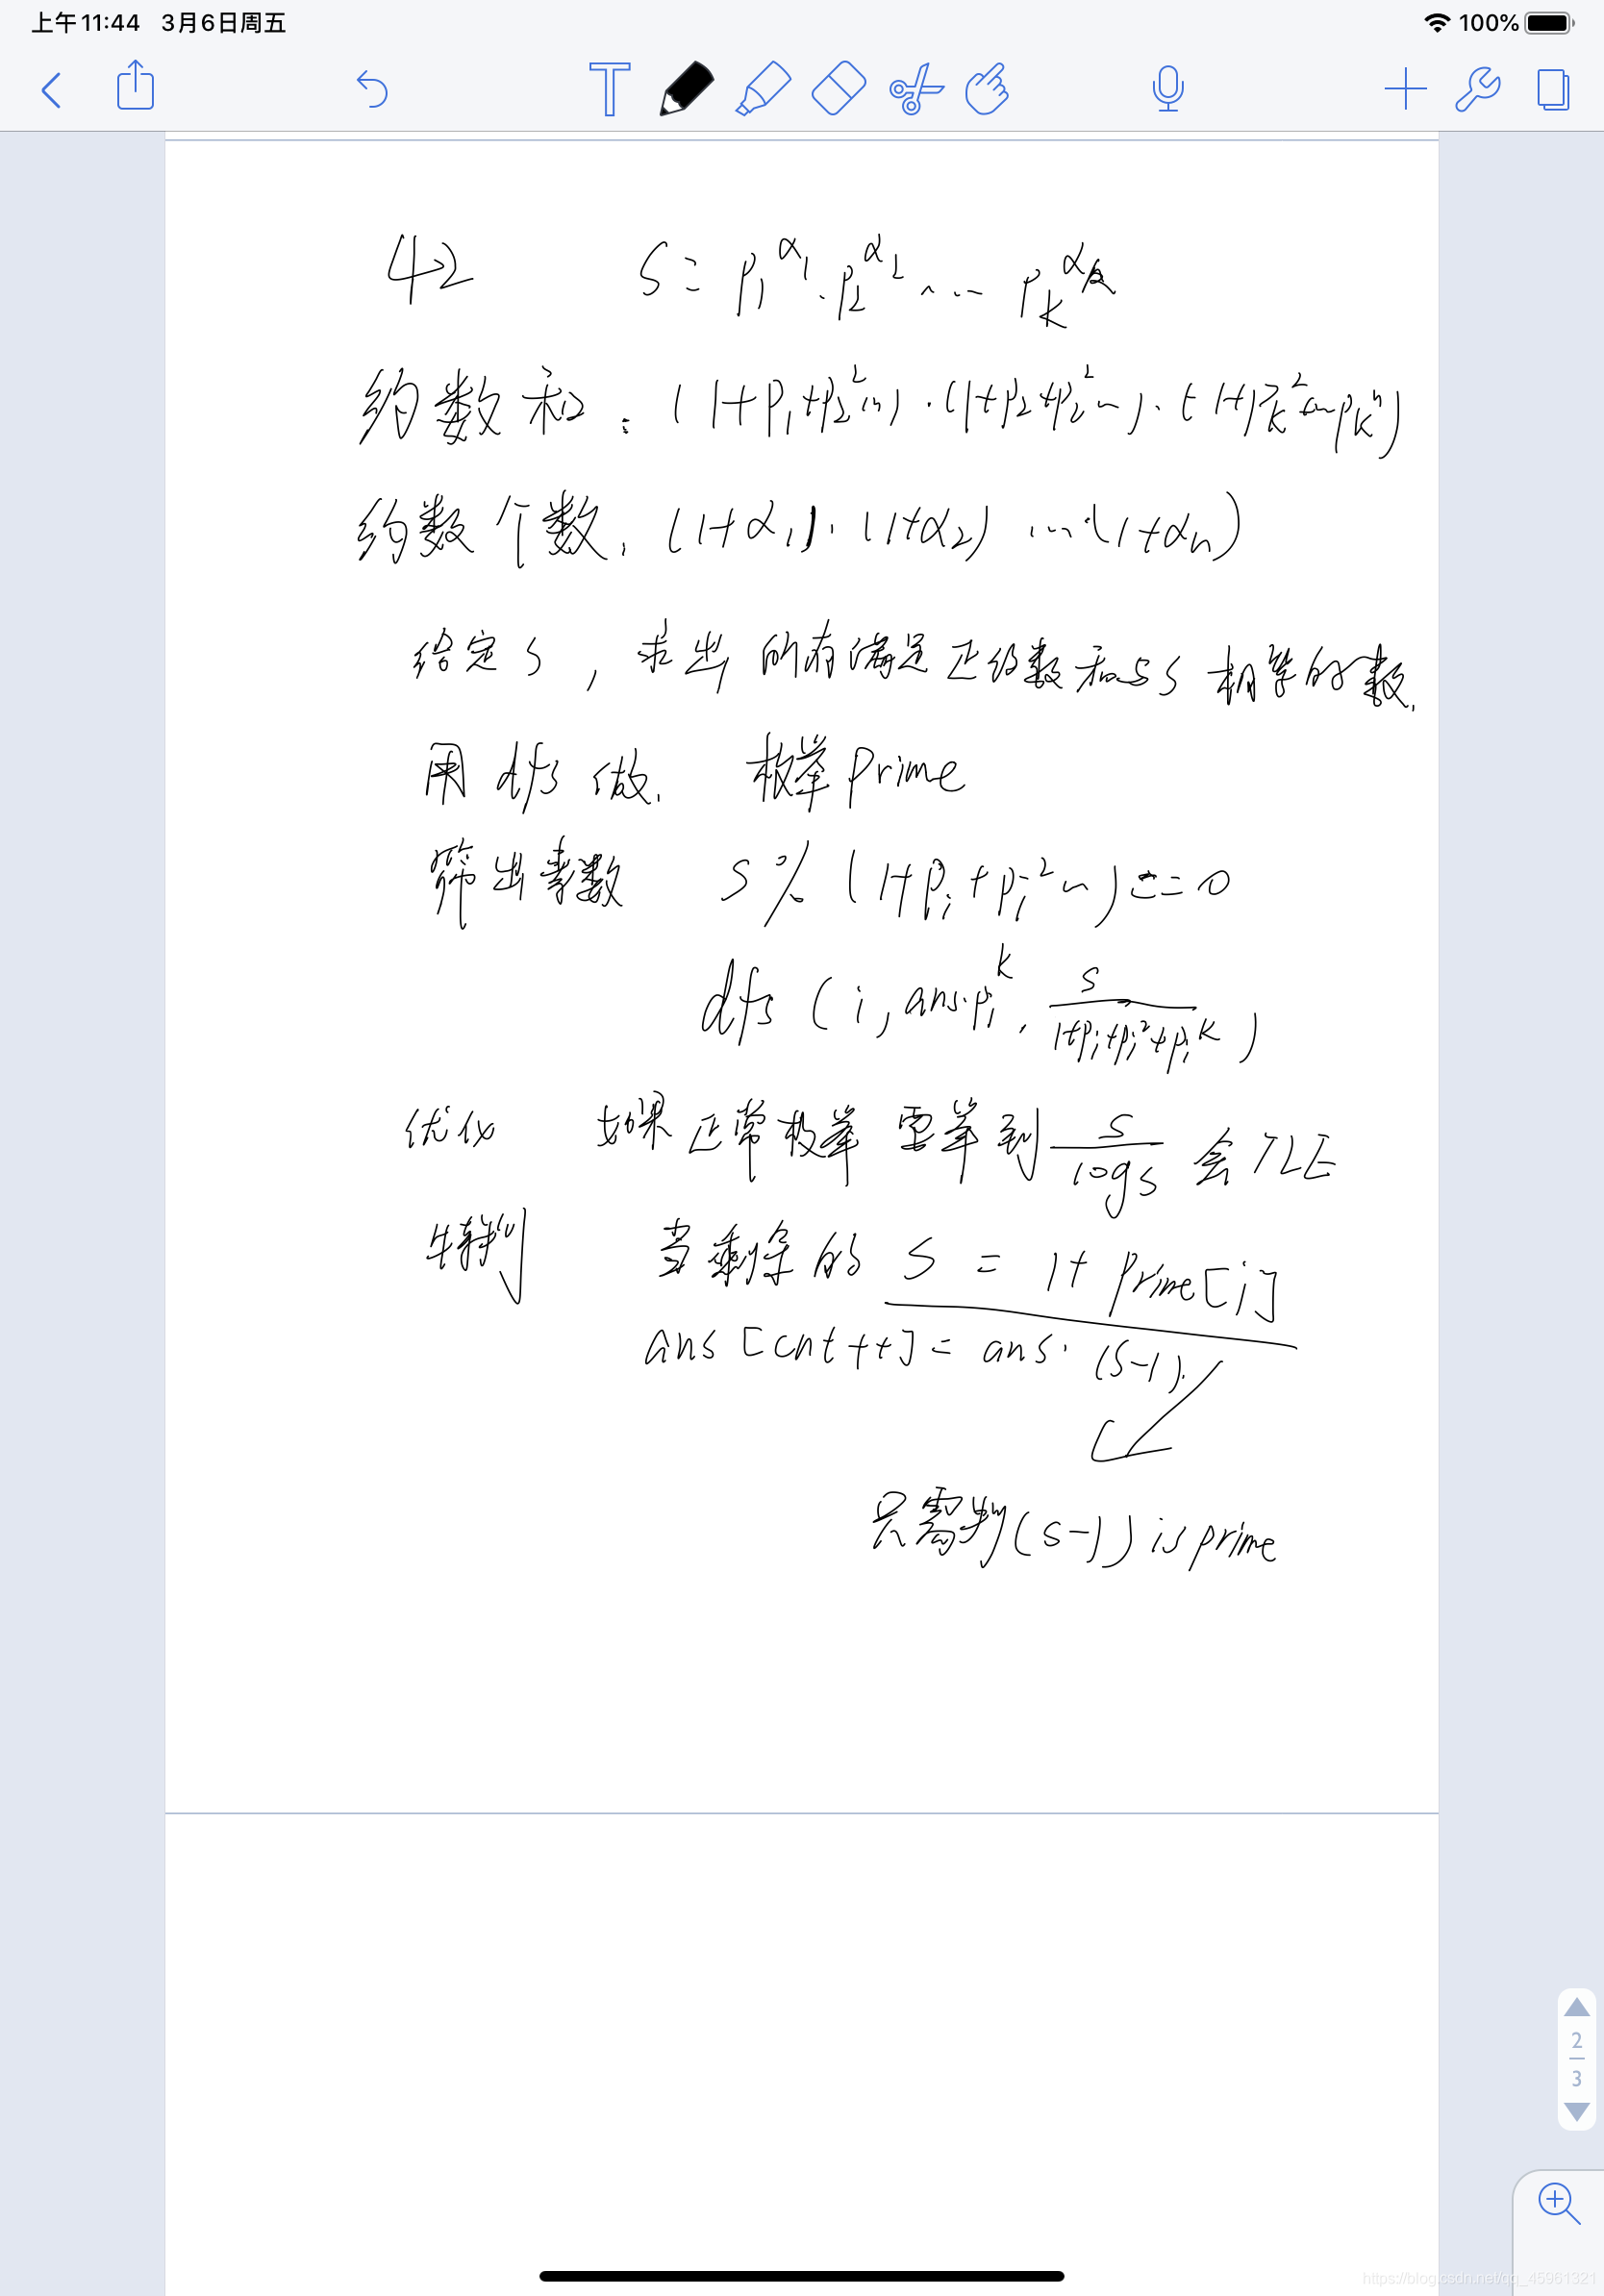 上午11:44 3月6日周五 100%
T
42 S = p₁^α₁ · p₂^α₂ ... p_k^α_k
约数和: (1+p₁+p₂²...) · (1+p₂+p₂²...) · (1+p_k²...p_kⁿ)
约数个数: (1+α₁) · (1+α₂) ... (1+αₙ)
给定S, 求出所有满足正约数和与S相等的数.
用dfs做. 枚举prime
筛出素数 S % (1+pᵢ+pᵢ²...) == 0
dfs (i, ans·pᵢ^k, S/(1+pᵢ+pᵢ²+pᵢ^k))
优化 如果正常枚举需举到 S/logS 会TLE
特判 当剩余的 S = 1+prime[i]
ans[cnt++] = ans·(S-1).
只需判(S-1) is prime
2
3
https://blog.csdn.net/qq_45961321